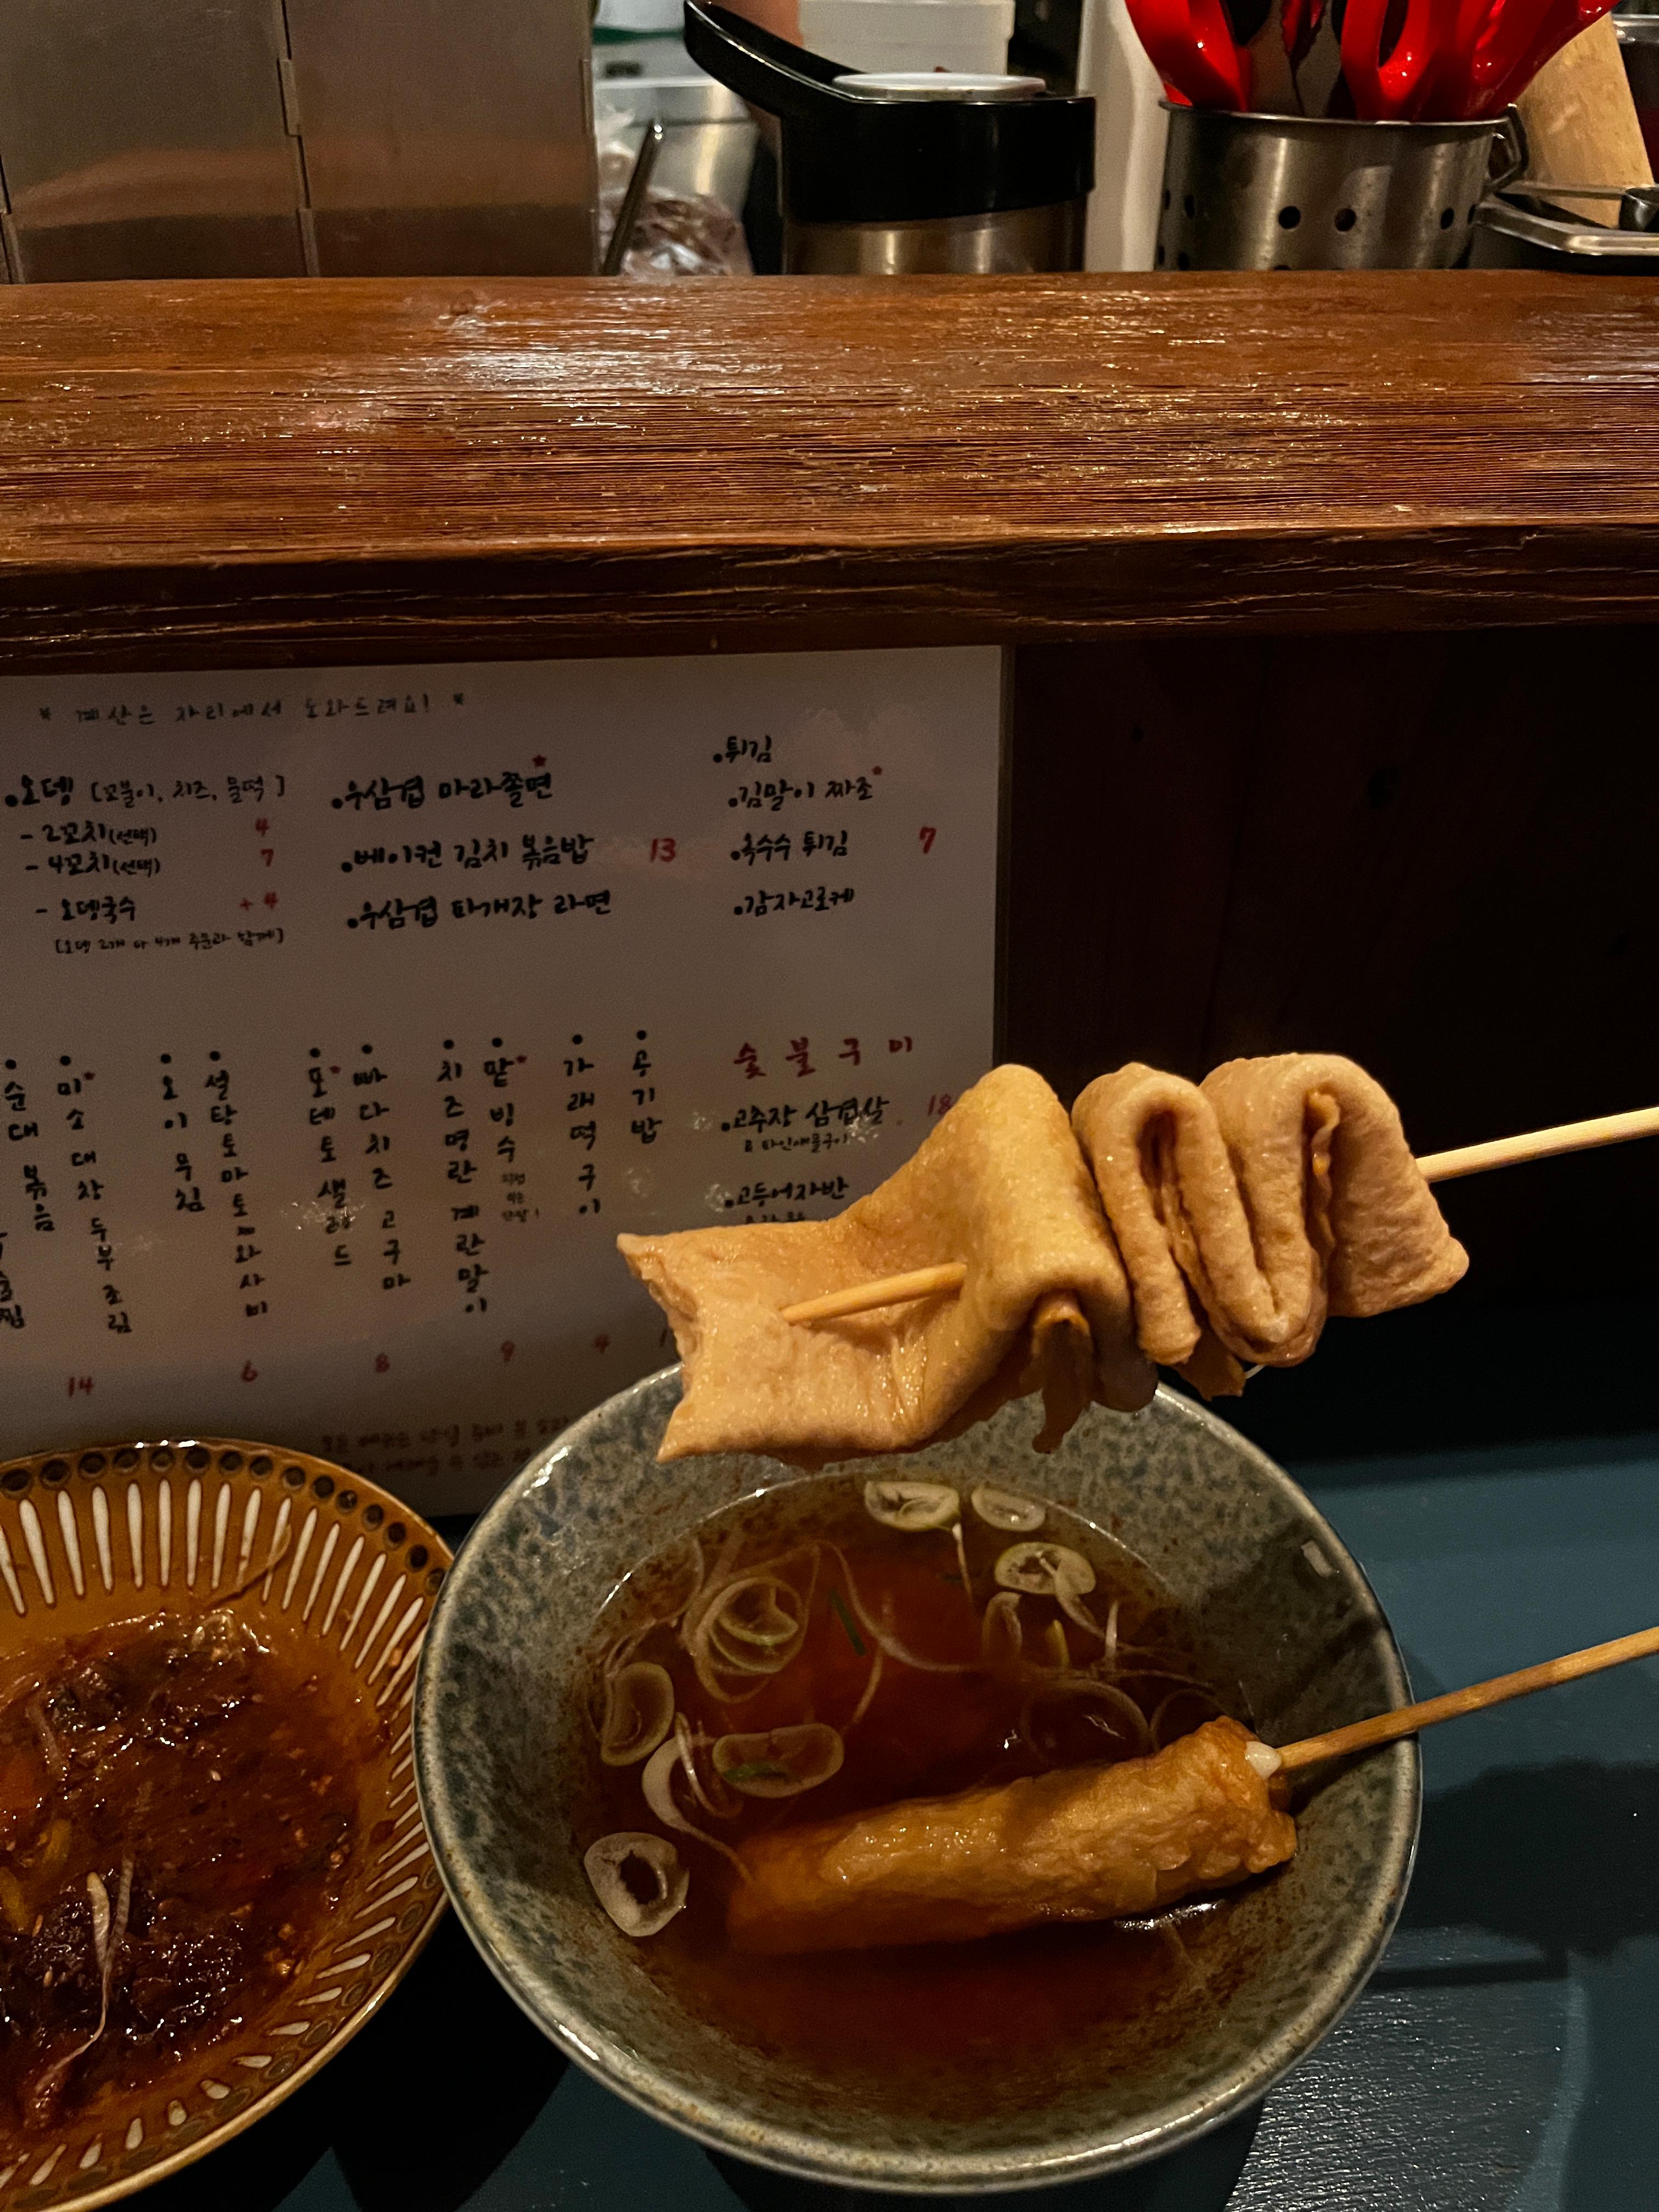 * 계산은 자리에서 도와드려요! *
•오뎅 [꼬불이, 치즈, 물떡]
- 2꼬치(선택) 4
- 4꼬치(선택) 7
- 오뎅국수 +4
[오뎅 2개 or 4개 주문과 함께]
•우삼겹 마라쫄면
•베이컨 김치 볶음밥 13
•우삼겹 파개장 라면
•튀김
•김말이 짜조
•옥수수 튀김 7
•감자고로케
•순대볶음
•미소대창두부조림
14
•오이무침
•설탕토마토와사비
6
•포테토샐러드
•빠다치즈고구마
8
•치즈명란계란말이
9
•맡빙수
•가래떡구이
4
•공기밥
숯불구이
•고추장 삼겹살 18
& 파인애플구이
•고등어자반